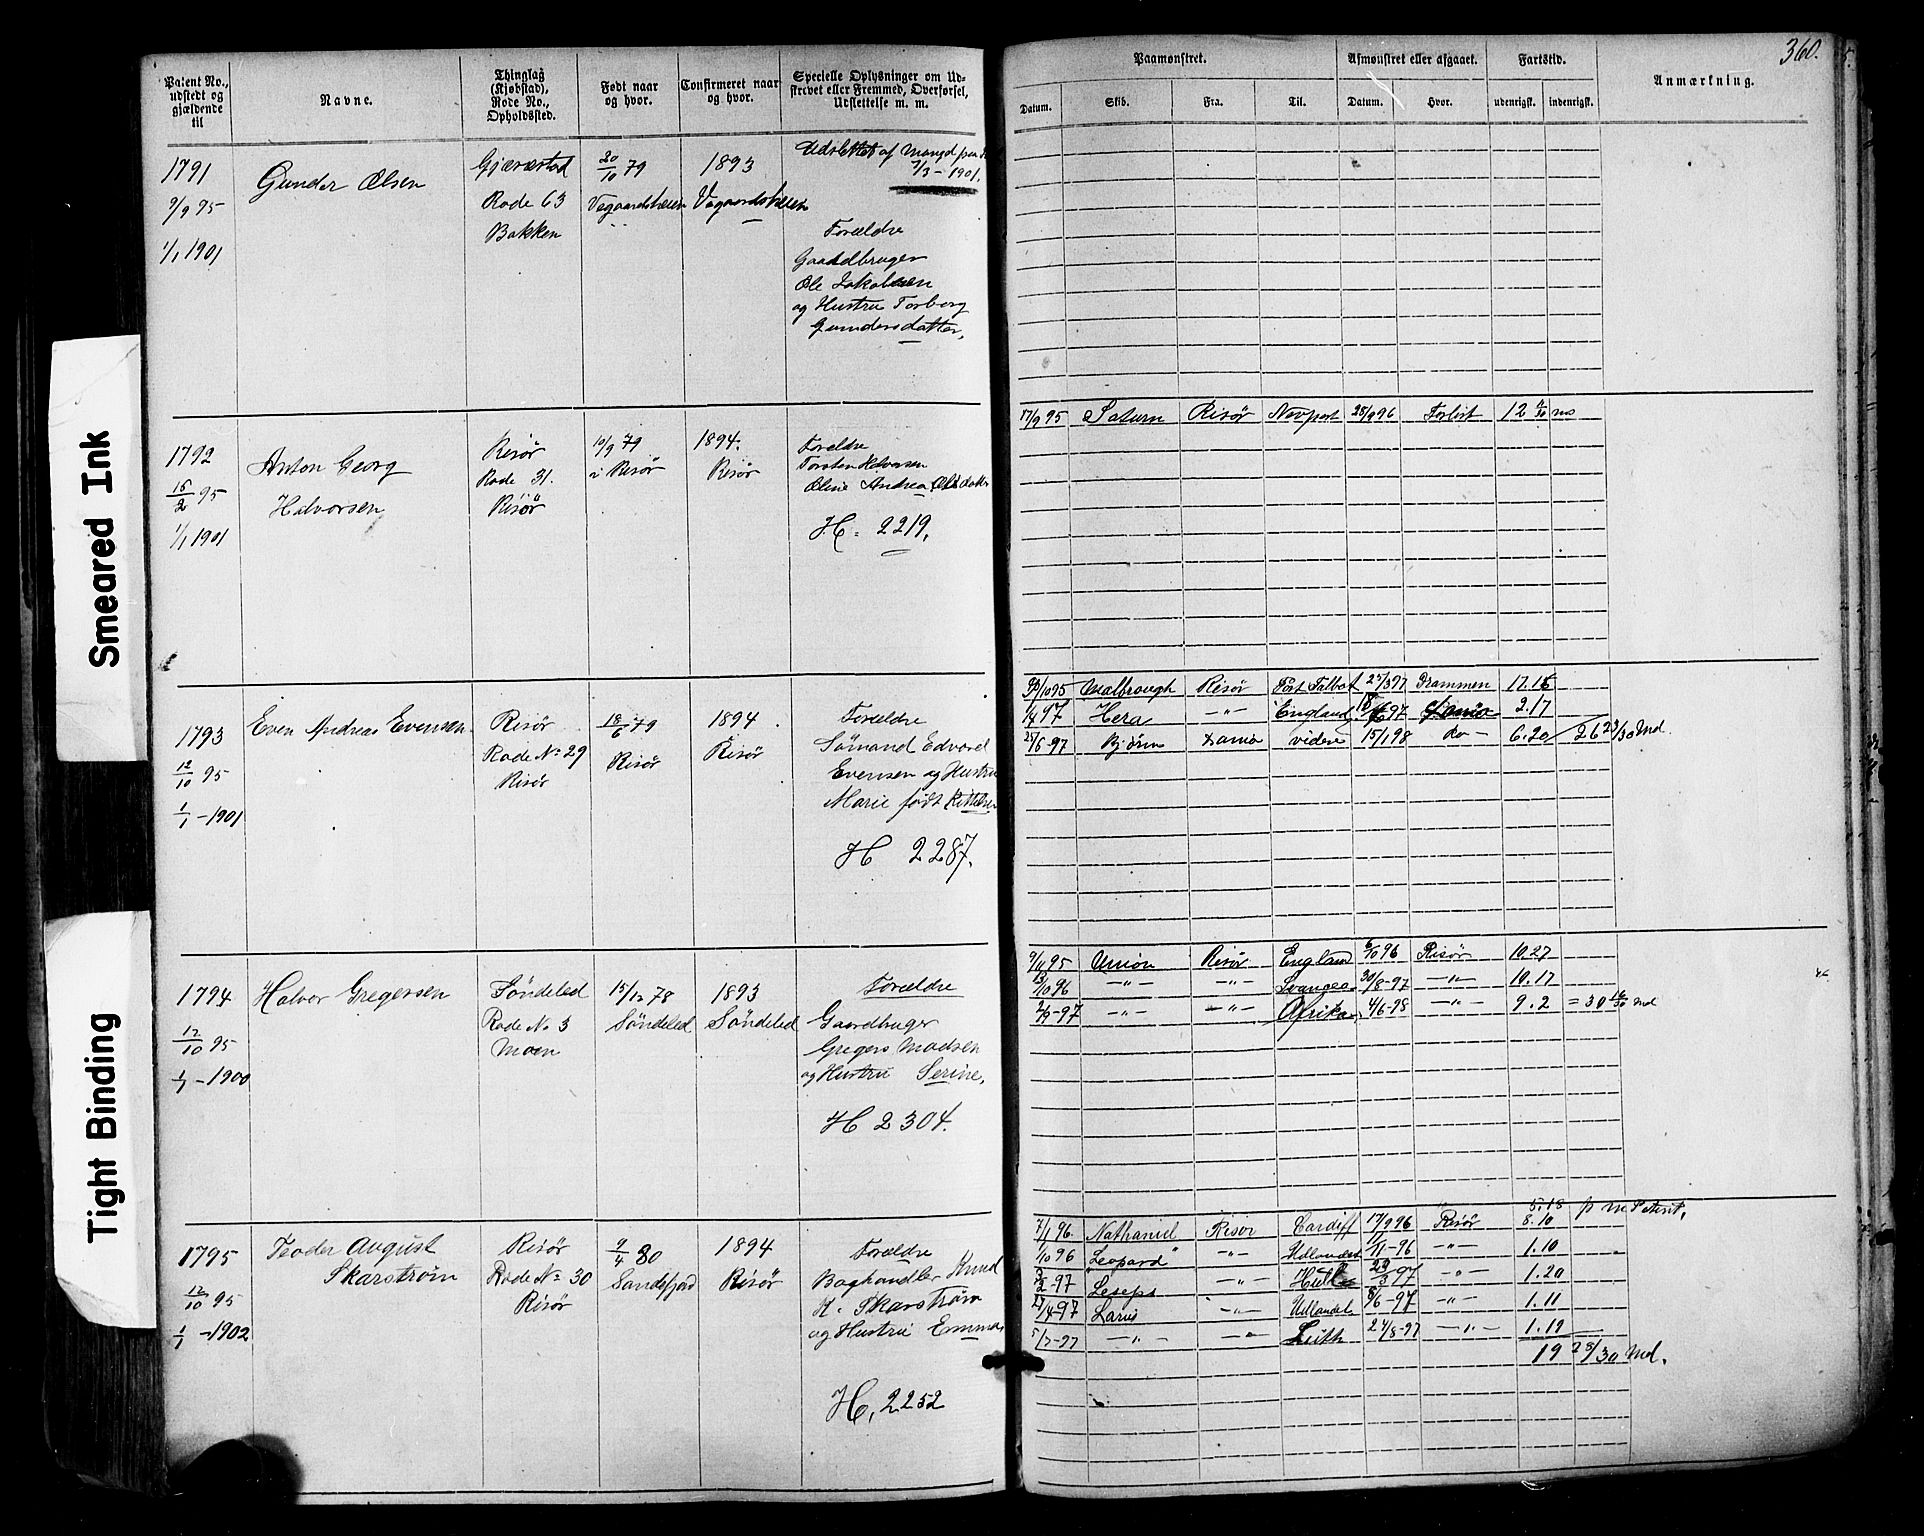 360.
Smeared Ink
Tight Binding
Patent No., udstedt og gjældende til
Navne.
Thinglag (Kjøbstad), Rode No., Opholdssted.
Født naar og hvor.
Confirmeret naar og hvor.
Specielle Oplysninger om Udskrevet eller Fremmed, Overførsel, Udslettelse m. m.
Paamønstret.
Afmønstret eller afgaaet.
Fartstid.
Anmærkning.
Datum.
Skib.
Fra.
Til.
Datum.
Hvor.
udenrigsk.
indenrigsk.
1791
9/9 95
1/1 1901
Gunder Olsen
Gjærestad
Rode 63
Bakken
20/10 79
Vegaardsheien
1893
Vegaardsheien
Udslettet af Mangd
7/3 - 1901.
Forældre
Gaardbruger
Ole Jakobsen
og Hustru Torborg
Gundersdatter,
1792
15/2 95
1/1 1901
Anton Georg
Halvorsen
Risør
Rode 31.
Risør
10/9 79
i Risør
1894.
Risør
Forældre
Torsten Halvorsen
Oline Andrea
H. 2219.
17/9 95 Saturn Risør Newport 25/9 96 Forlist 12
1793
12/10 95
1/1 - 1901
Even Andreas Evensen
Risør
Rode No 29
Risør
18/6 79
Risør
1894
Risør
Forældre
Sømand Edvard
Evensen og Hustru
Marie født Kittelsen
H 2287.
/10 95 Malbrough Risør Port Talbot 25/3 97 Drammen 17.15
1/4 97 Hera -"- England 97 2.17
25/6 97 Bjørn videre 15/1 98 do - 6.20 26 23/30 Md.
1794
12/10 95
1/1 - 1900
Halvor Gregersen
Søndeled
Rode No 3
Moen
15/12 78
Søndeled
1893
Søndeled
Forældre
Gaardbruger
Gregers Madsen
og Hustru Serine,
H 2304.
9/11 95 Union Risør England 6/10 96 Risør 10.27
/10 96 -"- -"- Svansea 30/8 - 97 -"- 10.17
2/9 - 97 -"- -"- Afrika 4/6 - 98 -"- 9.2 = 30 16/30 Md
1795
12/10 95
1/1 - 1902
Teodor August
Skarstrøm
Risør
Rode No 30
Risør
9/4 80
Sandefjord
1894
Risør
Forældre
Baghandler Knud
K. Skarstrøm
og Hustru Emma
H. 2252
5.18
7/1 96. Nathaniel Risør Cardiff 17/9 96 Risør 8.10
1/10 96 "Leopard" -"- Udlandet /11 - 96 -"- 1.10
2/2 97 Leseps -"- Hull 23/3 97 -"- 1.20
/4 97 Larus -"- Udlandet 8/6 - 97 -"- 1.11
5/7 - 97 -"- -"- Leith 24/8 - 97 -"- 1.19
19 25/30 Md.